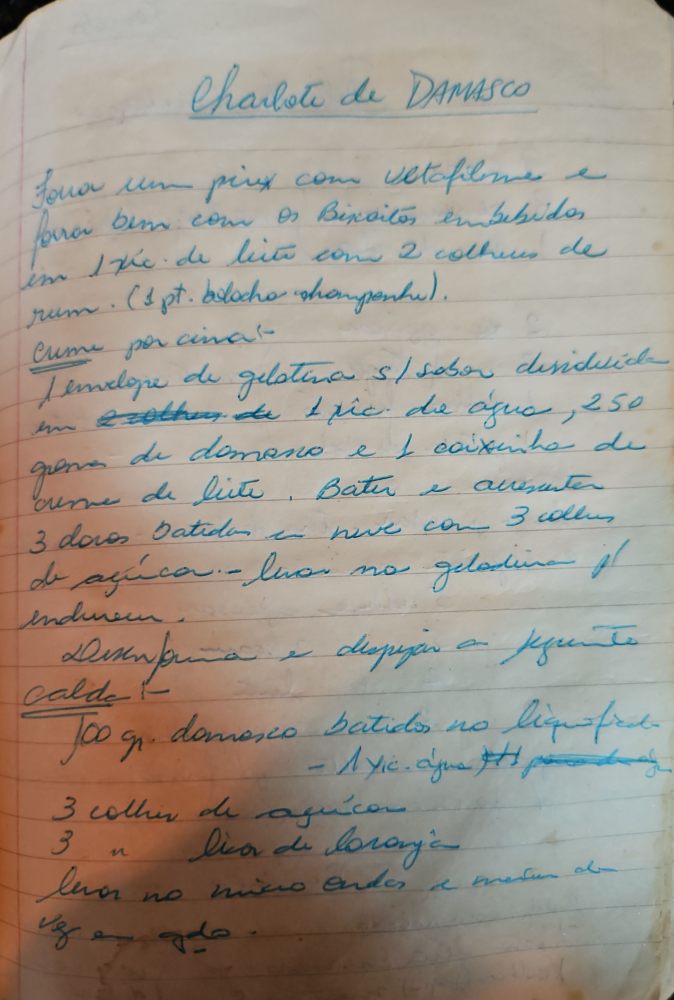 Charlote de DAMASCO
Forra um pirex com vitafilme e
forra bem com os Biscoitos embebidos
em 1 xíc. de leite com 2 colheres de
rum. (1 pt. bolacha champanhe).
Creme por cima:-
1 envelope de gelatina s/ sabor dissolvida
em 2 colheres de 1 xíc. de água, 250
grama de damasco e 1 caixinha de
creme de leite. Bater e acrescentar
3 claras batidas em neve com 3 colheres
de açúcar. - levar na geladeira p/
endurecer.
Desenforma e despejar a seguinte
calda:-
100 gr. damasco batidos no liquidificador
- 1 xíc. água
3 colher de açúcar
3 " licor de laranja
levar no micro ondas e mexer de
vez em qdo.